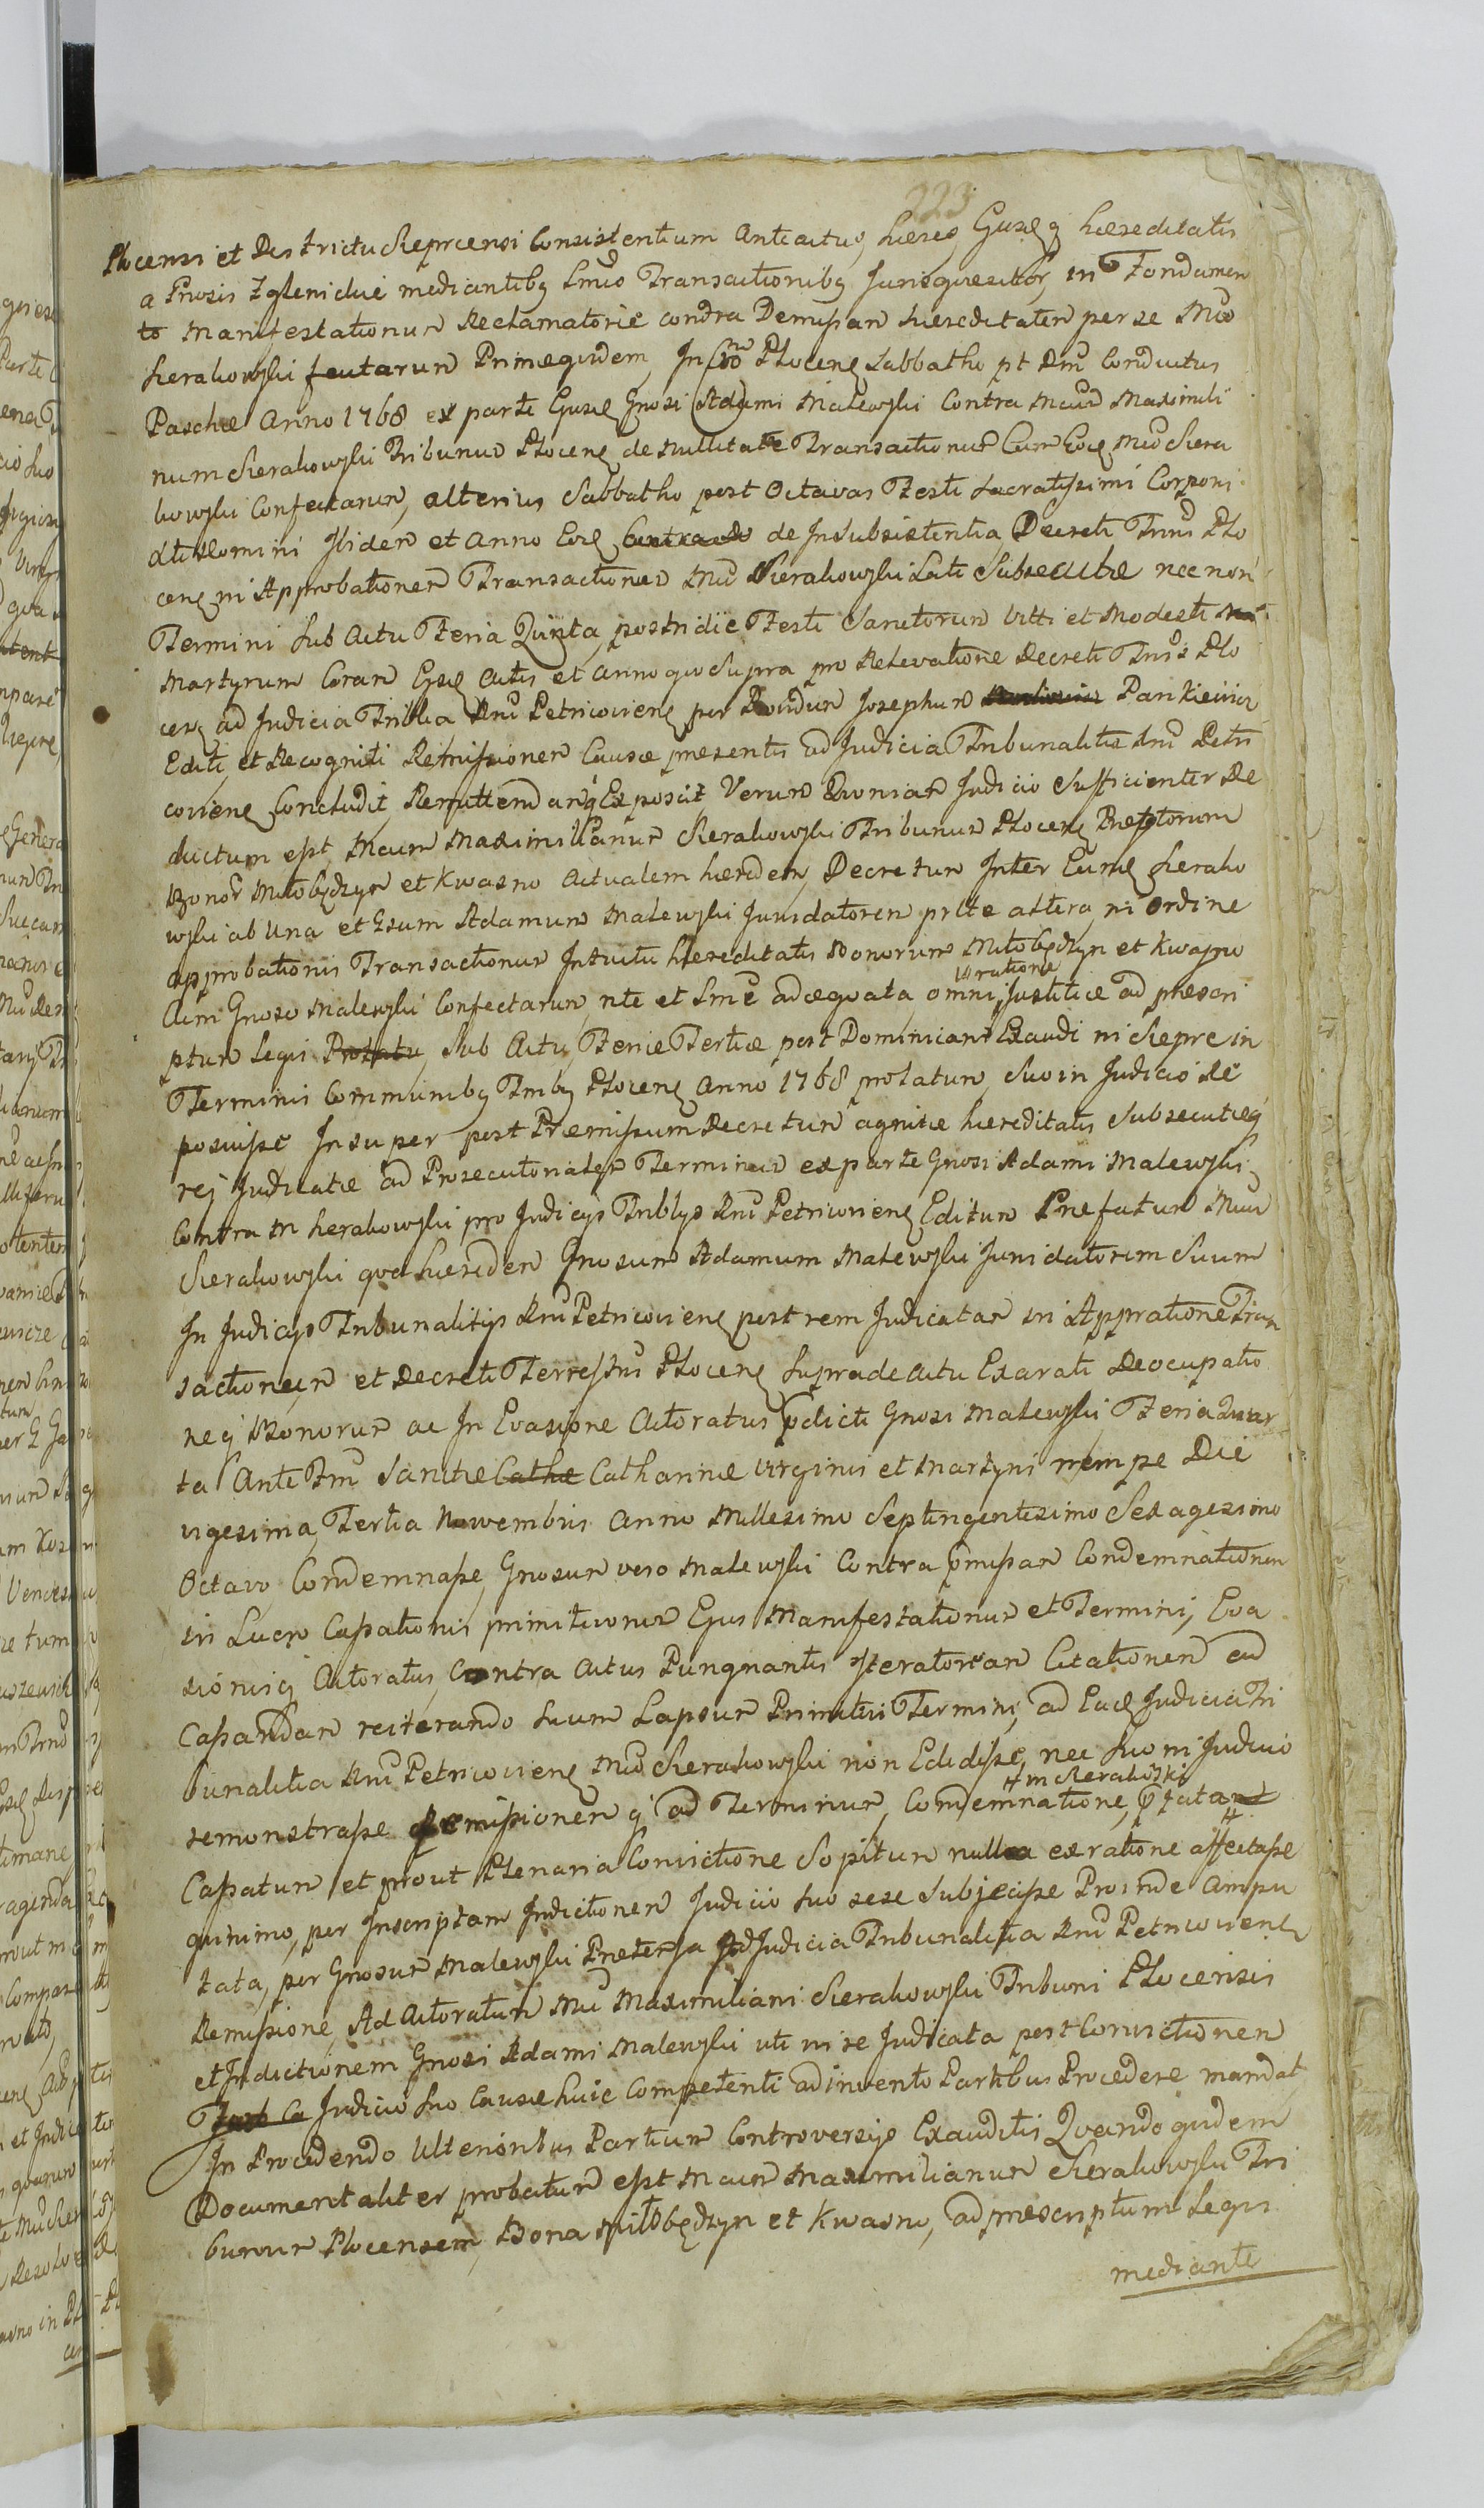 223
Plocensi et Districtu Sieprcensi Consistentium Anteactus, hæres, Ejusq hæreditatis
a Gnosis Zglenickie mediantibq Smis Transactionibq Jurisquesitor, in Fondamen
to Manifestationum Reclamatoriæ contra Demissam hæreditatem per se Mco
Sierakowski factarum Primequidem, In Cro Plocenq Sabbatho pt Dnm Conductus
Paschæ Anno 1768 ex parte Ejusq Gnosi Adami Malewski Contra Mcum Maximili
num Sierakowski Tribunum Plocenq de Nullitate Transactionum Cum Eoq Mco Siera
kowski Confectarum, alterius Sabbatho post Octavas Festi Sacratissimi Corporis
Xti Domini Ibidem et Anno Eoq de Insubsistentia Decreti Trris Plo
cenq in Approbationem Transactiones Mci Sierakowski Lati Subsecutæ nec non
Termini Sub Actu Feria Quinta, postridie Festi Sanctorum Vitti et Modesti
Martyrum Coram Ejsq Actis et Anno quo Supra pro Relevatione Decreti Trris Plo
cenq ad Judicia Trblia Rni Petricovienq per Josephum
Editi, et Recogniti Remissionem Causæ presentis ad Judicia Tribunalitia Rni Petri
covienq Concludit, Remittendamq Exposcit, Verum Quoniam Judicio Sufficienter De
ductum est, Mcum Maximillianum Sierakowski Tribunum Plocenq Prefatorum
Bonor Miłobędzyn et Kwasno Actualem hæredem, Decretum Inter Eumq Sierako
wski ab Una et Gsum Adamum Malewski Jurisdatorem prte altera in Ordine
approbationis Transactionum Intuitu hæreditatis Bonorum Miłobędzyn et Kwasno
Cum Gnoso Malewski Confectarum, nte et Sme adæquata, omni ratione Justitiæ ad prescri
ptum Legis Sub Actu Feriæ Tertiæ post Dominicam Exaudi in Siepre in
Terminis Communibq Trribq Plocenq Anno 1768 prolatum, Suo in Judicio Re
posuisse Insuper post Premissum Decretum agnitæ hæreditatis Subsecutæq
rej Judicatæ ad Prosecutorialem Terminum ex parte Gnosi Adami Malewski
Contra M Sierakowski pro Judicijs Trblys Rni Petricovienq Editum Prefatum Mcum
Sierakowski qva hæredem Gnosum Adamum Malewski Jurisdatorem Suum
In Judicijs Tribunalitijs Rni Petricovienq post rem Judicatam in Appratione Tran
sactionum et Decreti Terrestris Plocenq Supra de actu Exarati Deocupatio
neq Bonorum ac In Evasione Actoratus pdicti Gnosi Malewski Feria Quar
ta Ante Ftm Sanctæ Cathæ Catharinæ Virginis et Martyris nempe Die
vigesima Tertia Novembris Anno Millesimo Septingentesimo Sexagesimo
Octavo, Condemnasse, Gnosum vero Malewski Contra pmissam Condemnationem
in Lucro Cassationis primitivorum Ejus Manifestationum et Termini, Eva
sionisq Actoratus, Contra Actus Pungnantis Iteratoriam Citationem ad
Cassandam reiterando Suum Lapsum Primitivi Termini, ad Eaq Judicia Tri
bunalitia Rni Petricovienq Mco Sierakowski non Edidisse, nec Suo in Judicio
remonstrasse remissionem q ad Terminum, Condemnatione, pfata # M Sierakoski #
Cassatum et prout Plenaria Convictione Sopitum nulla ex ratione affectasse
quinimo, per Inscriptam Indictionem Judicio Suo sese Subjecisse Proinde ampu
tata, per Gnosum Malewski Pretensa Ad Judicia Tribunalitia Rni Petricovienq
Remissione, Ad Actoratum Mci Maximiliani Sierakowski Tribuni Plocensis
et Indictionem Gnosi Adami Malewski uti in re Judicata post Convictionem
Judicio Suo Causæ huic Competenti adinvento Partibus Procedere mandat
In Procedendo Ulterioribus Partium Controversijs Exauditis Quando quidem
Documentaliter probatum est Mcum Maximilianum Sierakowski Tri
bunum Plocensem, Bona Miłobędzyn et Kwasno, ad prescriptum Legis
mediante